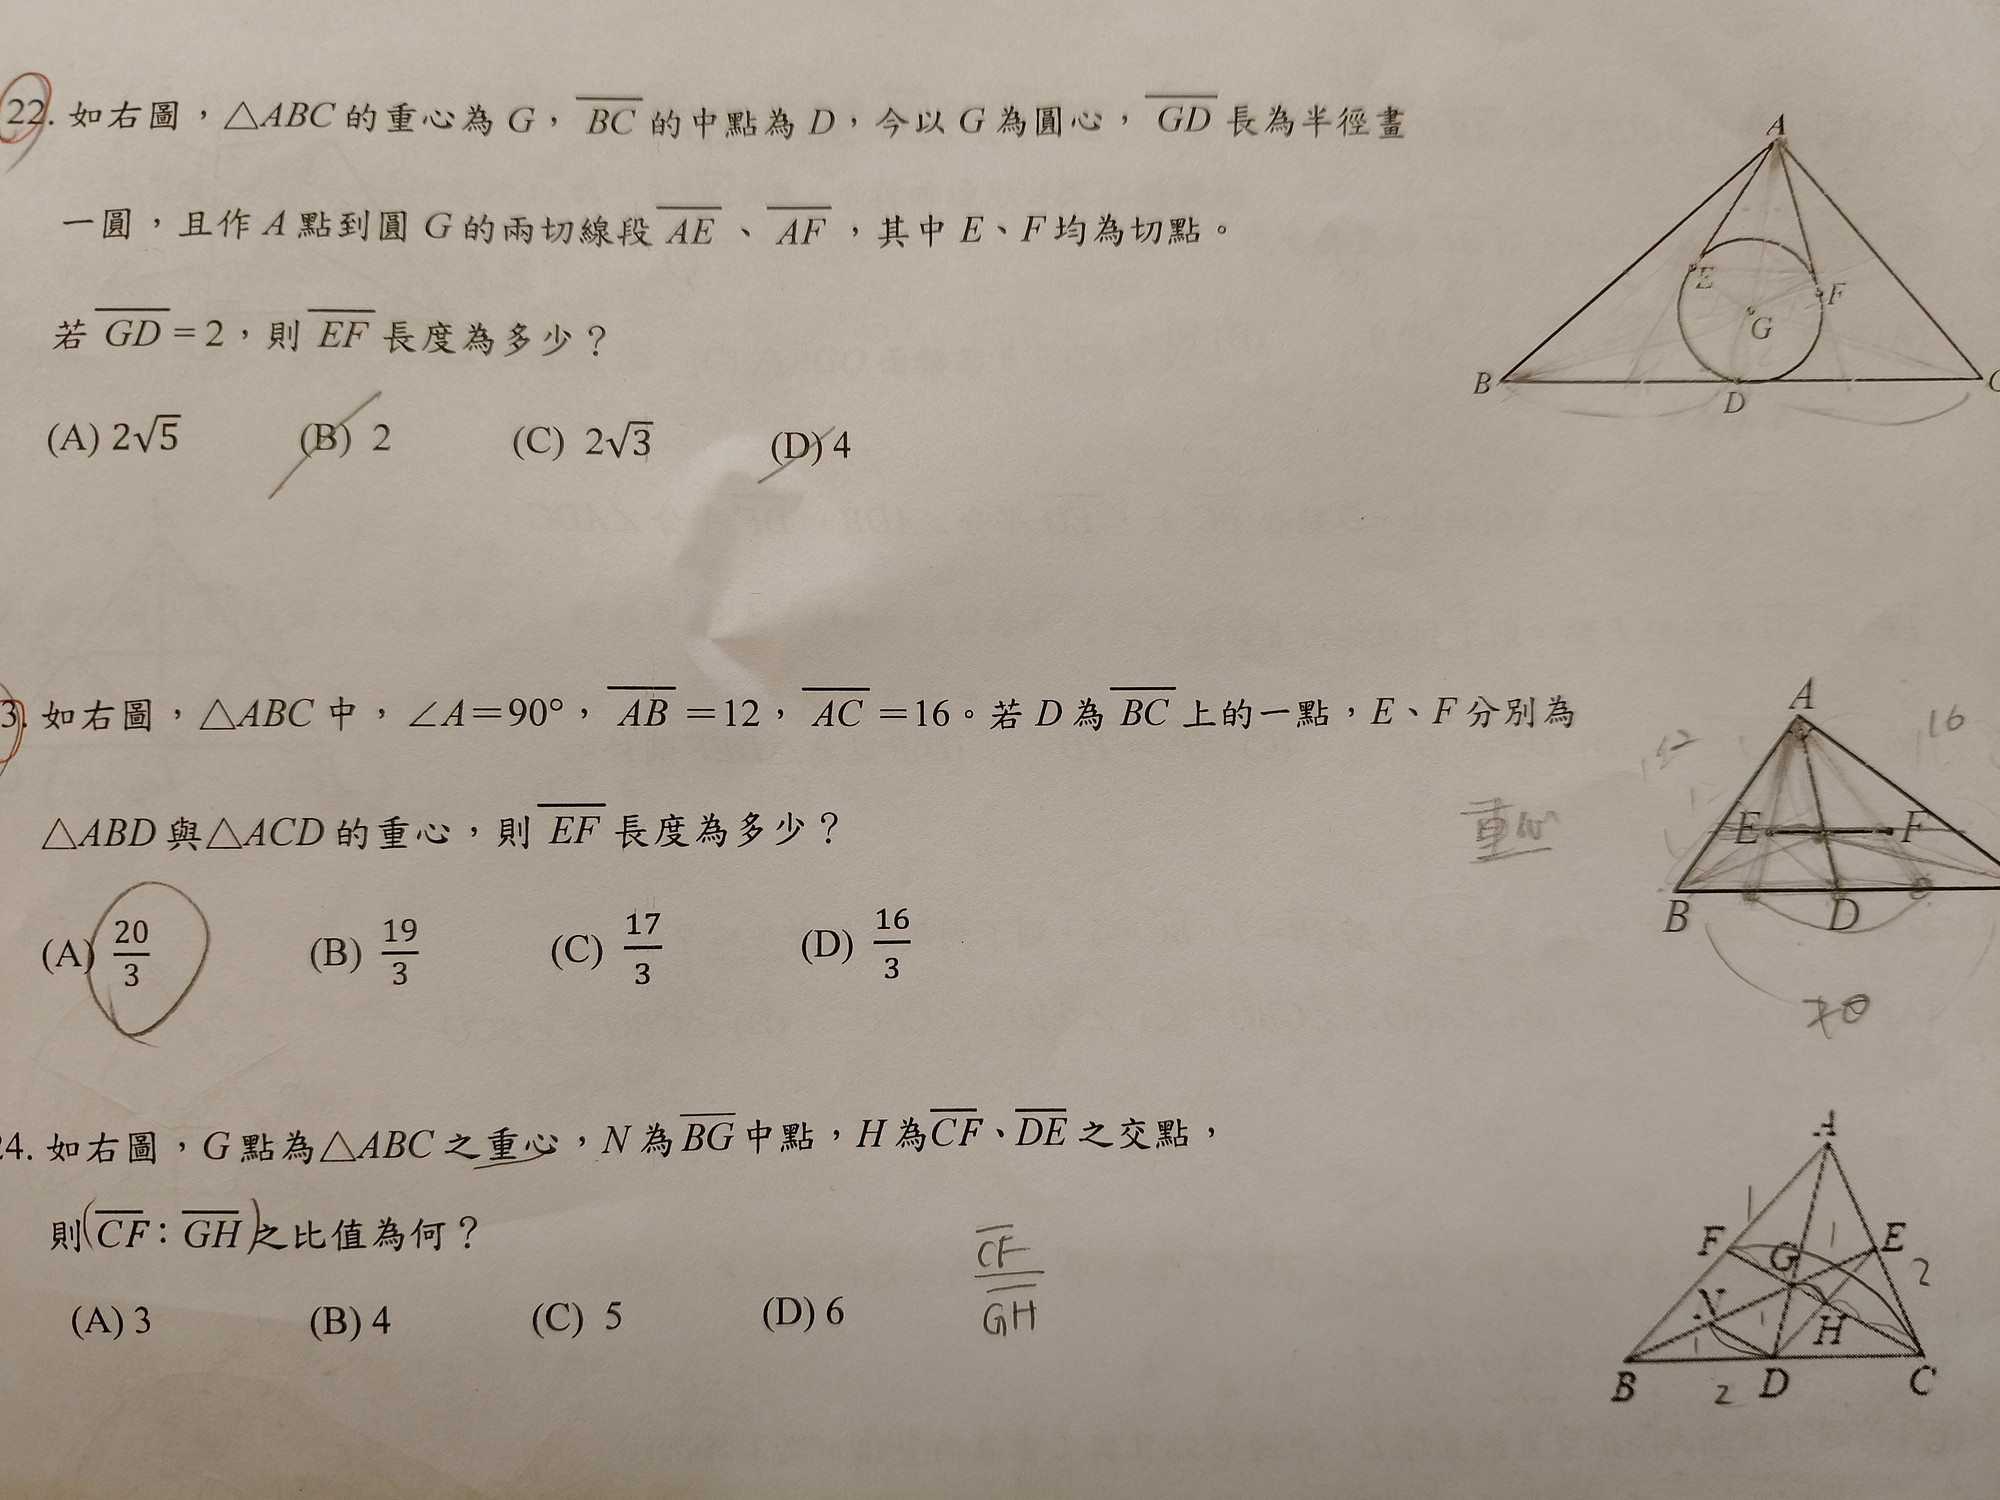 22. 如右圖，△ABC 的重心為 G，BC 的中點為 D，今以 G 為圓心，GD 長為半徑畫
一圓，且作 A 點到圓 G 的兩切線段 AE、AF，其中 E、F 均為切點。
若 GD = 2，則 EF 長度為多少？
(A) 2√5 (B) 2 (C) 2√3 (D) 4
A
E
F
G
B
D
3. 如右圖，△ABC 中，∠A＝90°，AB ＝12，AC ＝16。若 D 為 BC 上的一點，E、F 分別為
△ABD 與△ACD 的重心，則 EF 長度為多少？
(A) 20/3 (B) 19/3 (C) 17/3 (D) 16/3
重心
A
12 16
E F
B D
20
24. 如右圖，G 點為△ABC 之重心，N 為 BG 中點，H 為 CF、DE 之交點，
則(CF：GH)之比值為何？
(A) 3 (B) 4 (C) 5 (D) 6
CF
GH
A
1
F G 1 E
2
N 1 H
1
B D C
2